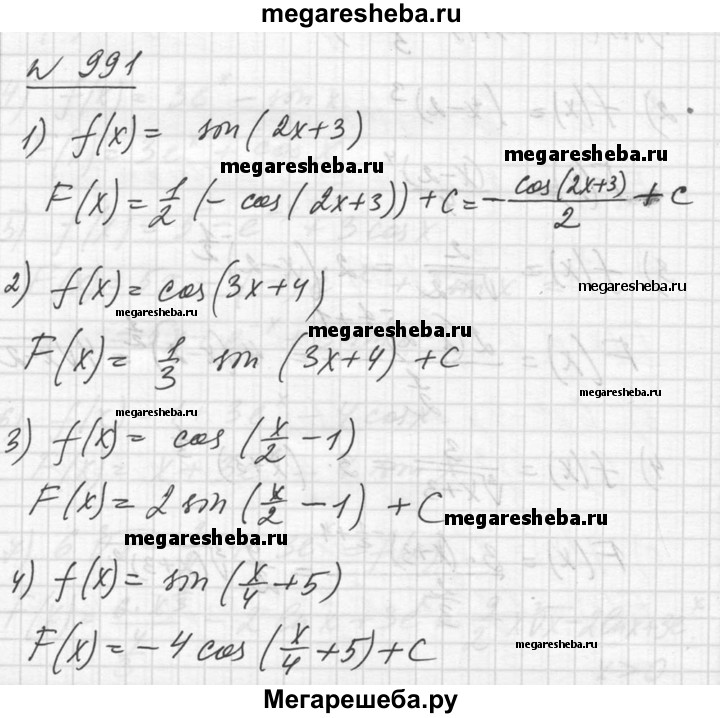 megaresheba.ru
N 991
1) f(x) = sin(2x+3)
megaresheba.ru
megaresheba.ru
F(x) = 1/2 (- cos(2x+3)) + C = - cos(2x+3)/2 + C
2) f(x) = cos(3x+4)
megaresheba.ru
megaresheba.ru
megaresheba.ru
F(x) = 1/3 sin (3x+4) + C
megaresheba.ru
megaresheba.ru
3) f(x) = cos (x/2 - 1)
F(x) = 2 sin (x/2 - 1) + C
megaresheba.ru
megaresheba.ru
4) f(x) = sin (x/4 + 5)
F(x) = - 4 cos (x/4 + 5) + C
megaresheba.ru
Мегарешеба.ру